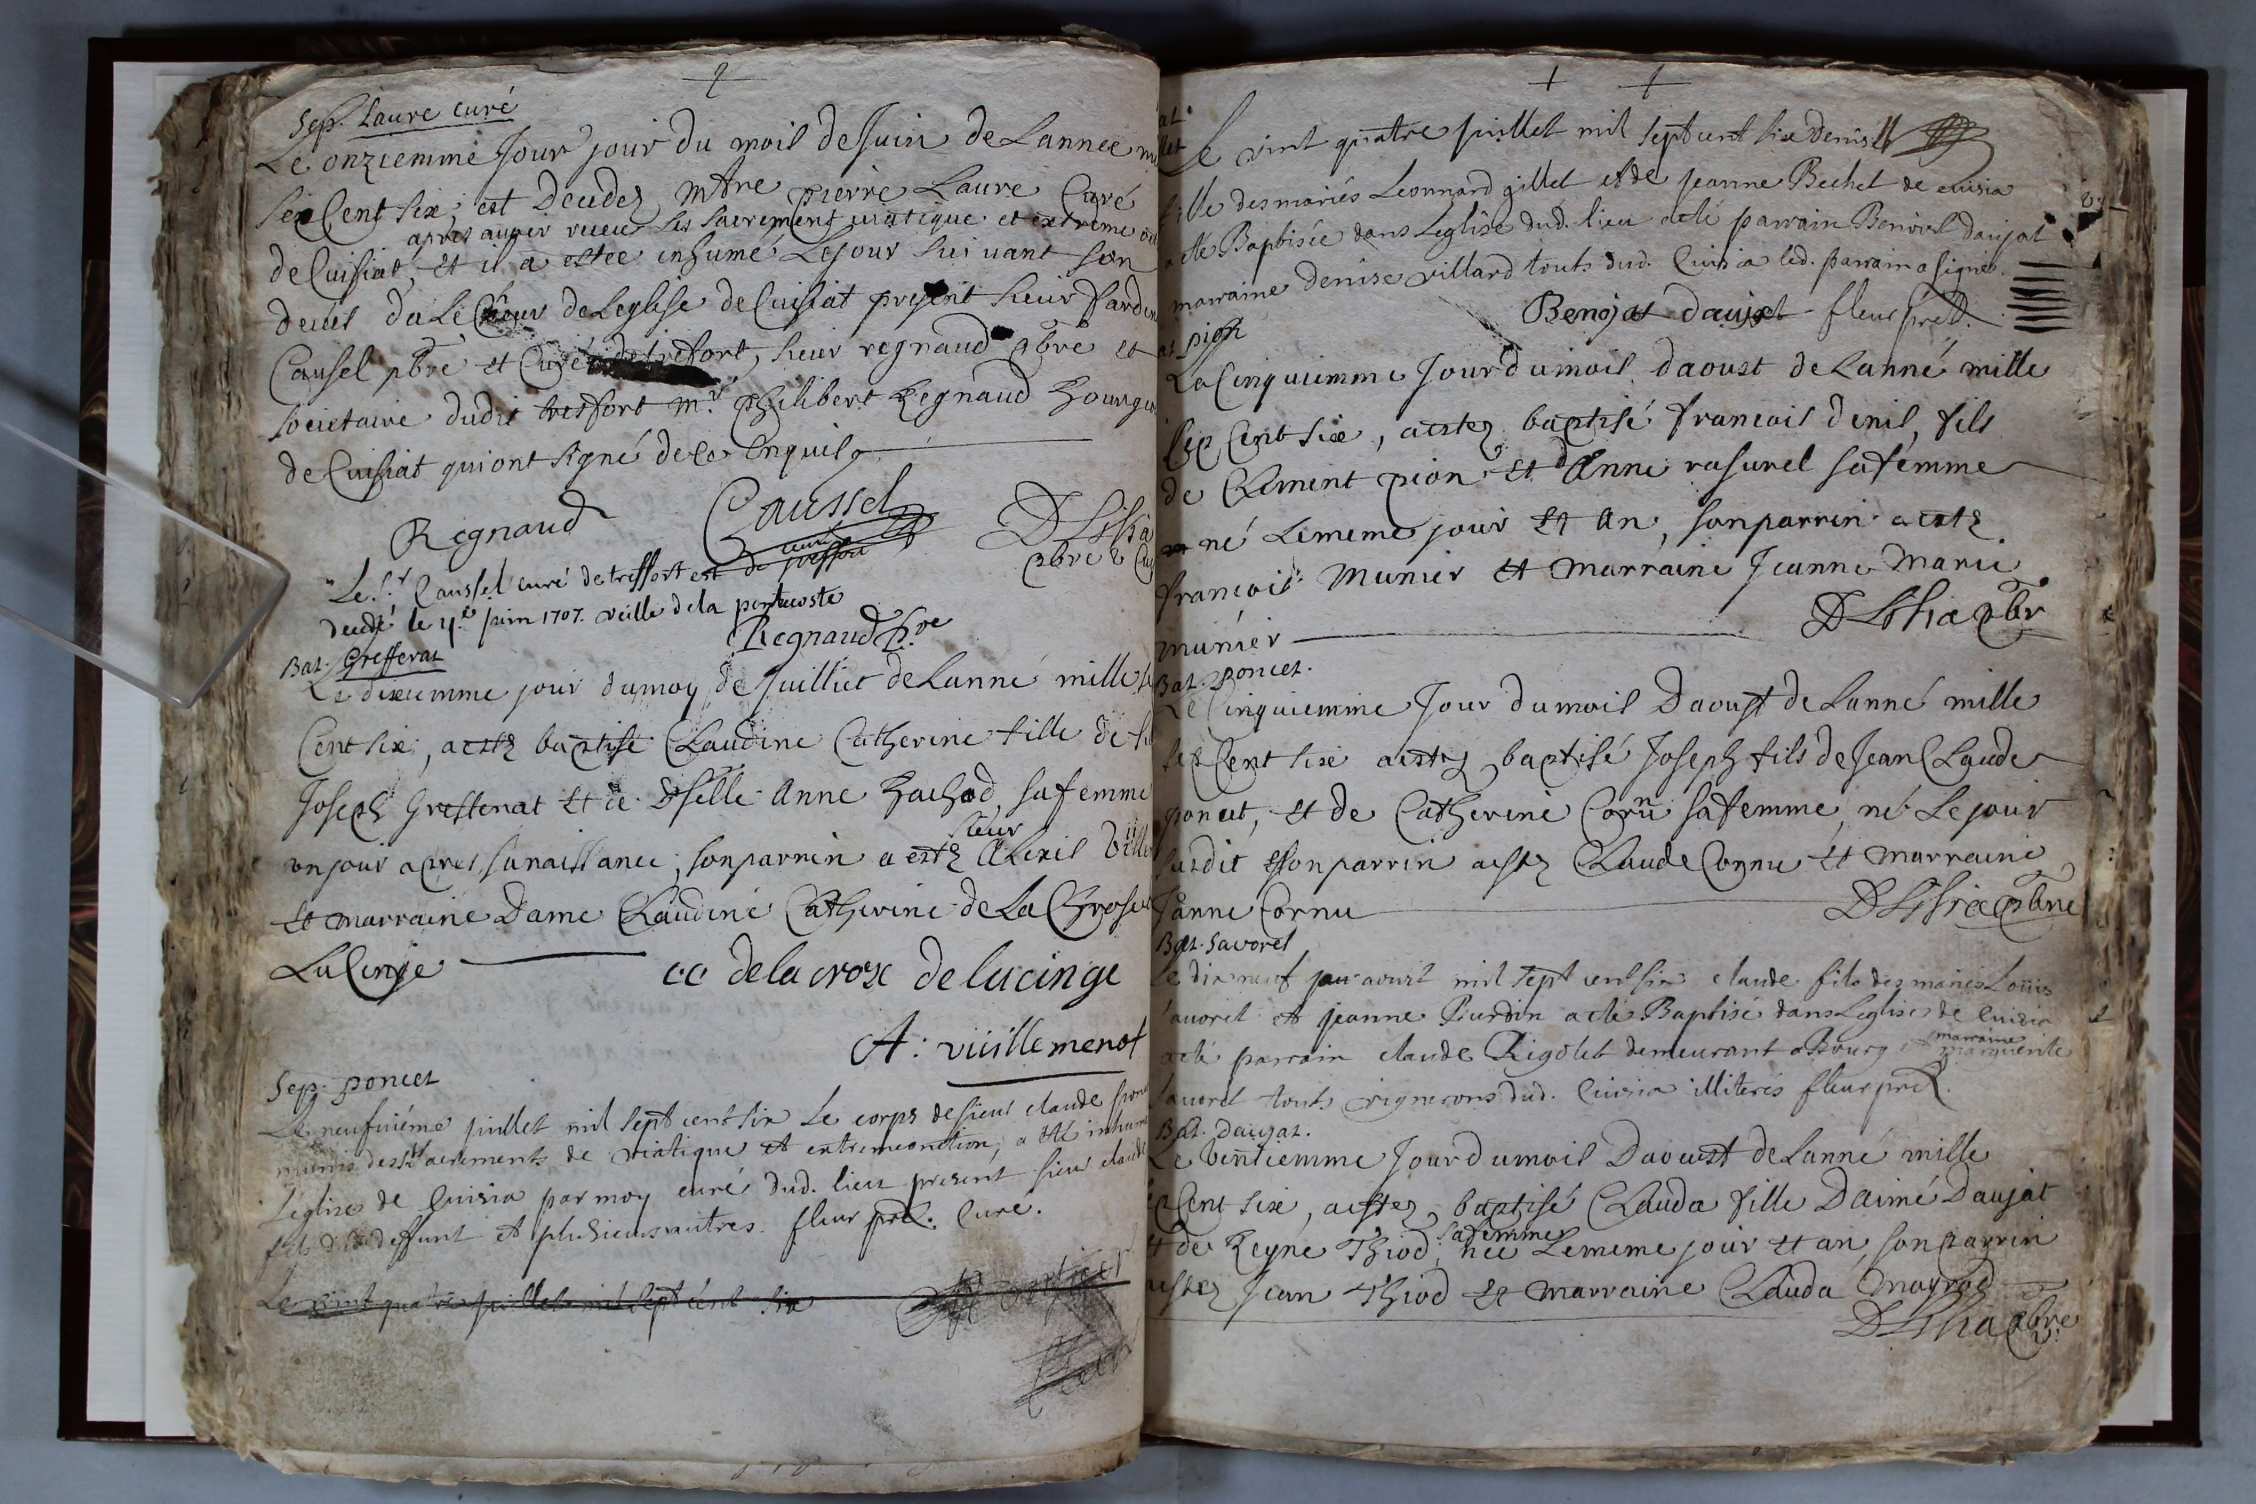 Sep. Laure curé
Le onziemme Jour jour du mois de Juin de Lannee
sept Cent six, est Decedez mtre pierre Laure Curé
apres auoir receu les sacrement uiatique et extreme
de Cuisiat, et il a estee inhumé Le jour sui uant son
deces da Le Chœur de Leglise de Cuisiat present sieur
Causel pbre et Curé de trefort, sieur regnaud pbre et
societaire dudit tresfort mr. philibert Regnaud
de Cuisiat qui ont signé de ce Enquis
Regnaud Caussel
curé de treffort
Le Sr. Caussel curé de treffort est
decedé le juin 1707. veille de la pentecoste
Regnaud pbre
Bat. Greffenat
Le dixiemme jour du moy de Juilliet de Lanné mille
Cent six, a estz baptisé Claudine Catherine fille de
Joseph Greffenat Et de dselle Anne Hachod, sa femme
un jour apres sa naissance, son parrin a estz sieur Alexis
Et marraine Dame Claudine Catherine de La
Lucinge
cc delacroix de lucinge
A: vieillemenot
Sep. poncet
Le neufuiéme juillet mil sept cent six Le corps de sieur claude
munis des Sts sacrements de viatique et extremeonction, a été
L'église de Cuisia par moy curé dud. lieu present sieur claude
fils dud deffunt et plusieurs autres. fleur pre. Curé.
Le vint quatre juillet mil sept cent six
Le vint quatre juillet mil sept cent six denise
fille des mariés Leonnard gillet et de jeanne Bechet de cuisia
a été Baptisée dans Leglise dud. lieu a été parrain Benoist daujat
marraine denise villard touts dud. Cuisia led. parrain a signé.
Benojst daujat fleur pre.
pion
Le Cinquiemme Jour du mois daoust de Lanné mille
Sep Cent six, a estez baptisé francois denis, fils
de Clement pion et dAnne rasurel sa femme
né Le meme jour Et An, son parrin a estz
francois Munier Et Marraine Jeanne Marie
munier
Bat. poncet.
Le Cinquiemme Jour du mois Daoust de Lanné mille
sep Cent six a estez baptisé Joseph fils de Jean Claude
poncet, Et de Catherine Cornu sa femme, né Le jour
susdit Et son parrin a estez Claude Cornu Et Marraine
Janne Cornu
Bat. Savorel
Le dix neuf aoust mil sept cent six claude fils des mariés Loüis
sauorel et jeanne a été Baptisé dans Leglise de Cuisia
a été parrain claude Rigolet demeurant a Bourg et marraine marguerite
sauorel touts vignerons dud. Cuisia illiterés fleur pre.
Bat. daujat.
Le Ventiemme Jour du mois Daoust de Lanné mille
sep Cent six, a estez baptisé Clauda fille Daimé Daujat
Et de Reyne Thiod, sa femme née Le meme jour Et an, son parrin
a estez Jean Thiod Et Marraine Clauda